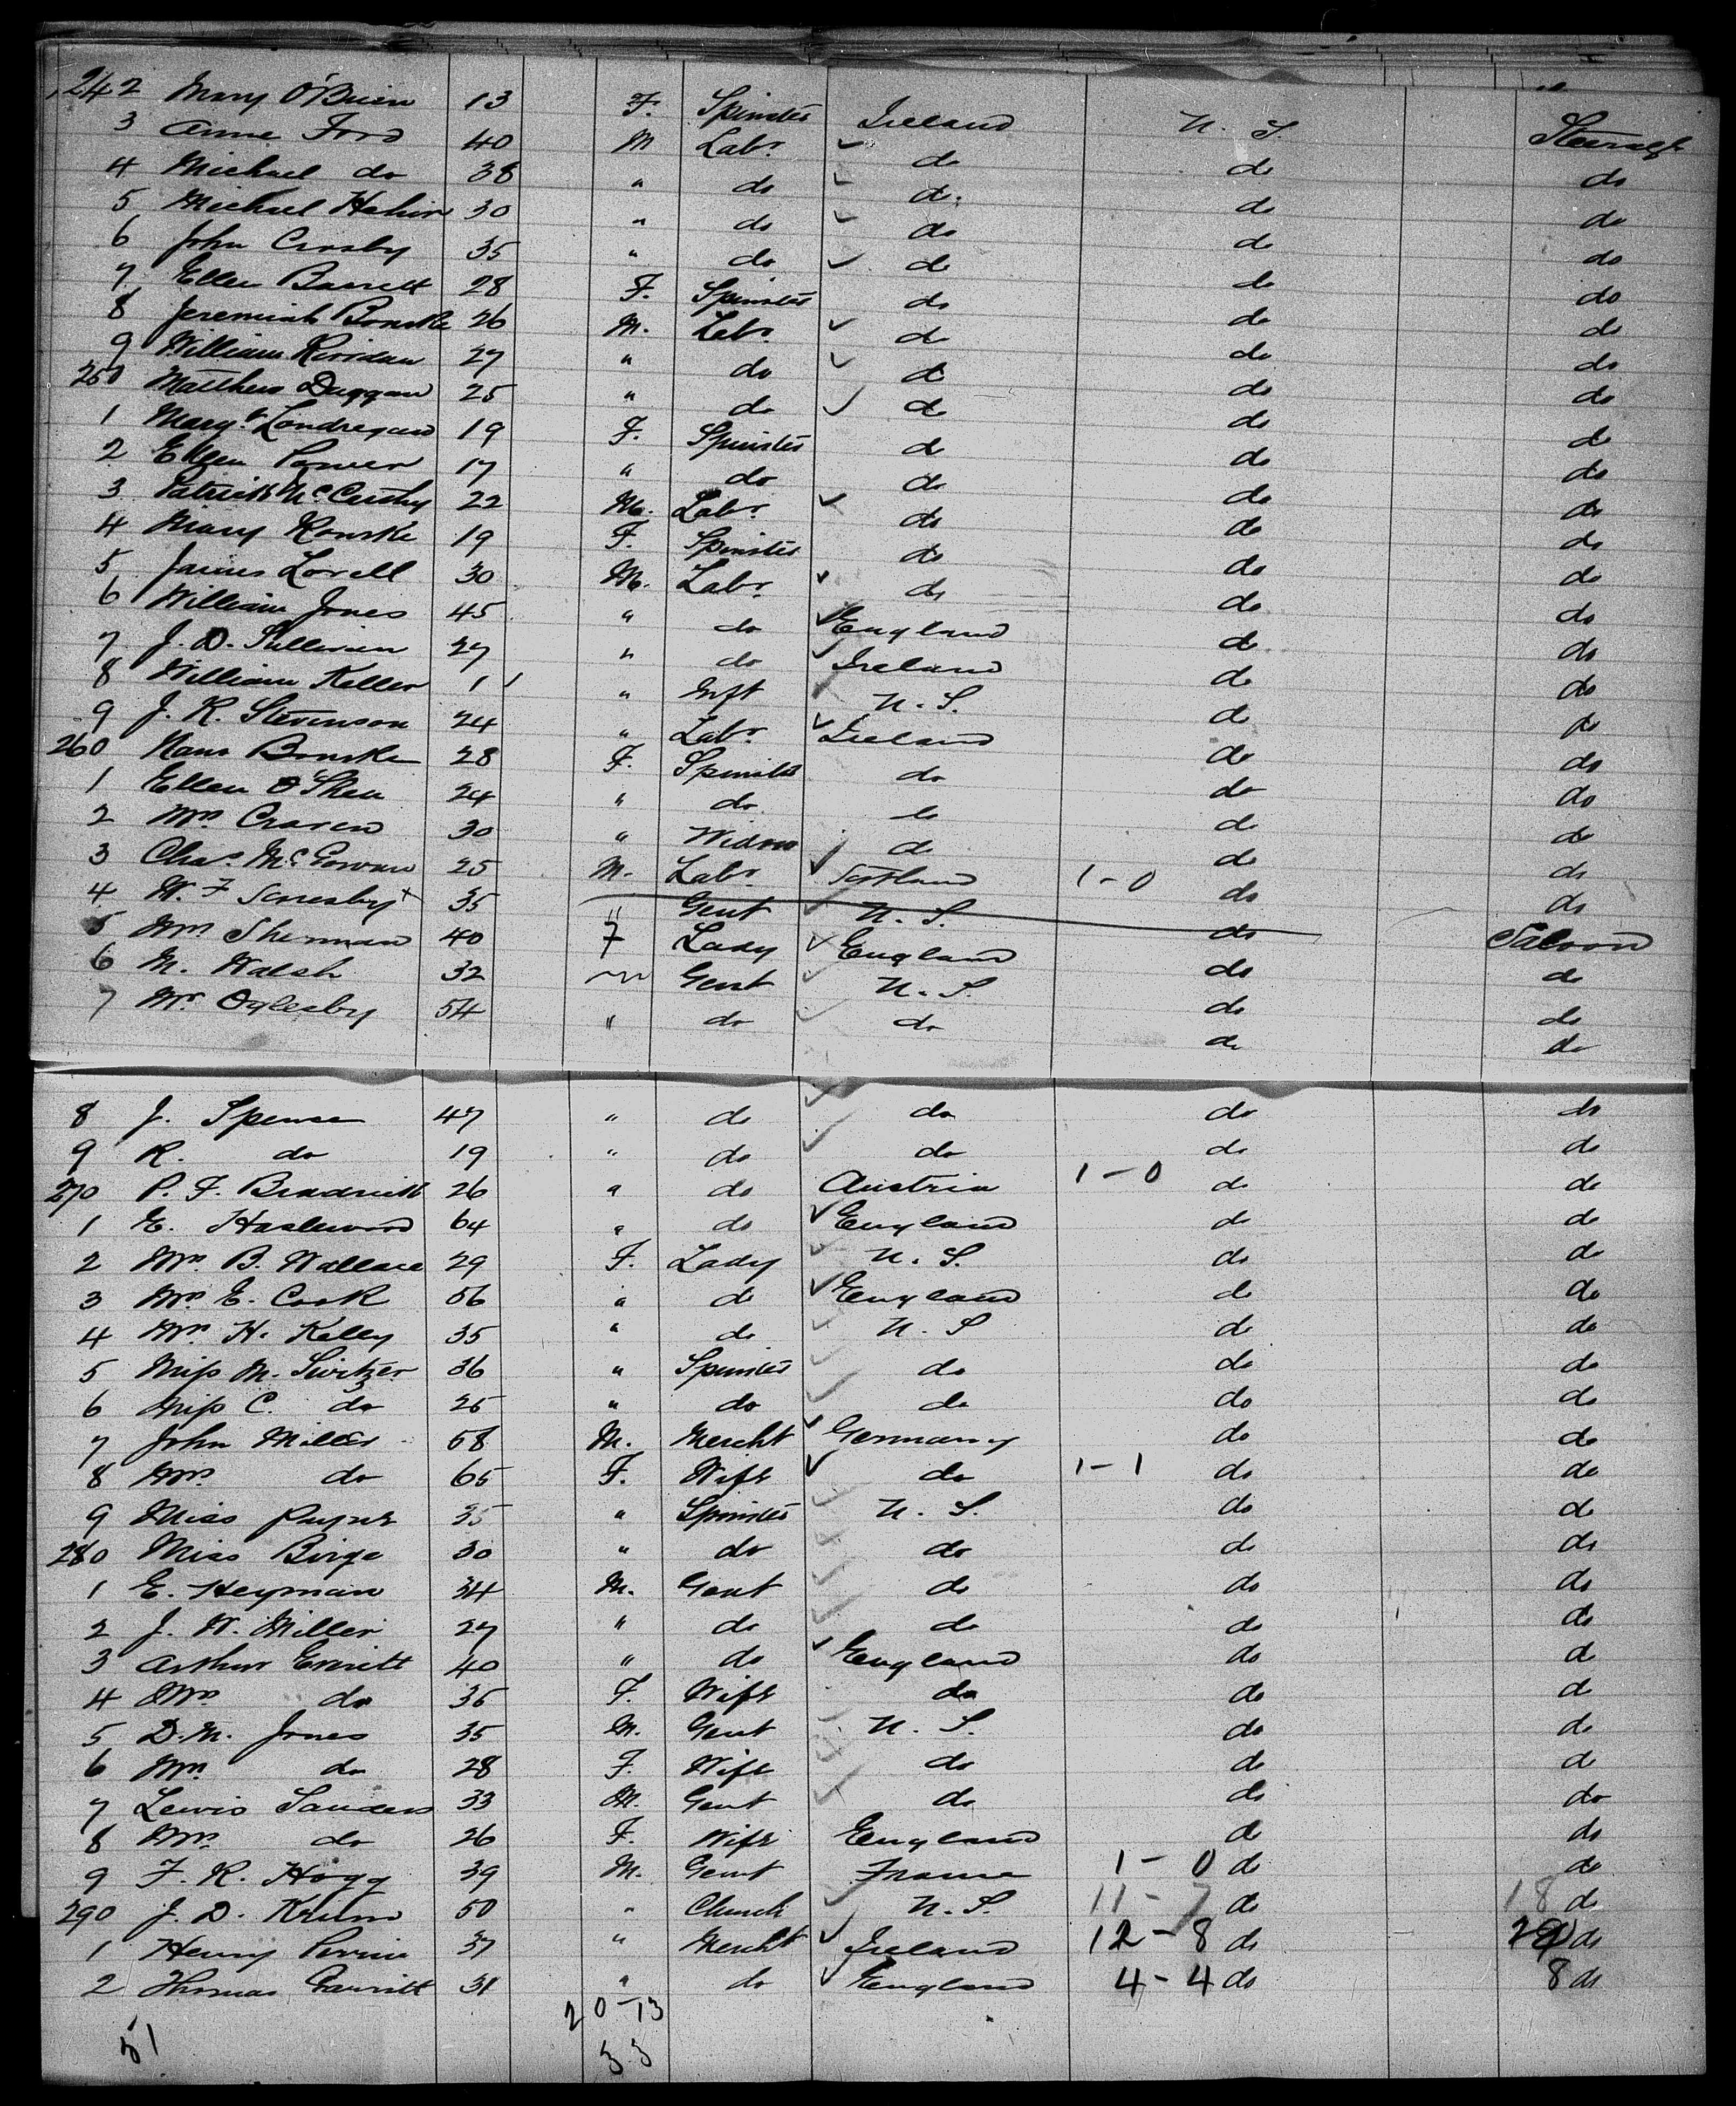 242 Mary O'Brien 13 F. Spinster Ireland U. S. Steerage
3 Anne Ford 40 M Labr. do do do
4 Michael do 38 " do do. do do
5 Michael 30 " do do do do
6 John Crosby 35 " do do do do
7 Ellen Barrett 28 F. Spinster do do do
8 Jeremiah 26 M. Labr. do do do
9 William Riordan 27 " do do do do
250 Matthew Duggan 25 " do do do do
1 Margt. Londregan 19 F. Spinster do do do
2 Ellen Power 17 " do do do do
3 Patrick McCarthy 22 M. Labr. do do do
4 Mary 19 F. Spinster do do do
5 James Lovell 30 M. Labr. do do do
6 William Jones 45 " do England do do
7 J. D. Sullivan 27 " do Ireland do do
8 William Keller 1 " Inft U. S. do do
9 J. R. Stevenson 24 " Labr. Ireland do do
260 28 F. Spinster do do do
1 Ellen O'Shea 24 " do do do do
2 Mrs. Craven 30 " Widow do do do
3 Chas. McGowan 25 M. Labr. Scotland 1-0 do do
4 W. F Scoresby x 35 " Gent U. S. do Saloon
5 Mrs Sherman 40 F Lady England do do
6 M. Walsh 32 Gent U. S. do do
7 Mr. Oglesby 54 " do do do do
8 J. Spense 47 " do do do do
9 R. do 19 " do do do do
270 P. F. 26 " do Austria 1-0 do do
1 E. Haslewood 64 " do England do do
2 Mrs. B. Wallace 29 F. Lady U. S. do do
3 Mrs. E. Cook 56 " do England do do
4 Mrs. H. Kelly 35 " do U. S do do
5 Miss M. Switzer 36 " Spinster do do do
6 Miss C. do 25 " do do do do
7 John Miller 58 M. Mercht Germany do do
8 Mrs do 65 F. Wife do 1-1 do do
9 Miss 35 " Spinster U. S. do do
280 Miss Birge 30 " do do do do
1 E. Heyman 34 M. Gent do do do
2 J. W. Miller 27 " do do do do
3 Arthur Everitt 40 " do England do do
4 Mrs do 36 F. Wife do do do
5 D. M. Jones 35 M. Gent U. S. do do
6 Mrs. do 28 F. Wife do do do
7 Lewis Sanders 33 M. Gent do do do
8 Mrs do 26 F. Wife England do do
9 F. R. Hogg 39 M. Gent France 1-0 do do
290 J. D. 50 " Church U. S. 11-7 do 18 do
1 Henry Perrin 37 " Mercht Ireland 12-8 do do
2 Thomas 31 " do England 4-4 do 8 do
20-13
51 33